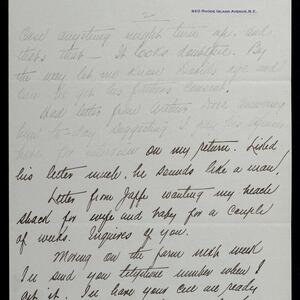 2
920 RHODE ISLAND AVENUE, N.E.
Case anything might turn up and
that's that – It looks doubtful. By
the way let me know David's age and
I'll be get his father's consent.
Had letter from Arthur Dove answering
him to-day suggesting I pay his
here for interview on my return. Liked
his letter much. He sounds like a man.
Letter from Jaffe wanting my beach
shack for wife and baby for a couple
of weeks. Inquires of you.
Moving on the farm next week
I'll send you telephone number when I
get it. I'll have your ready